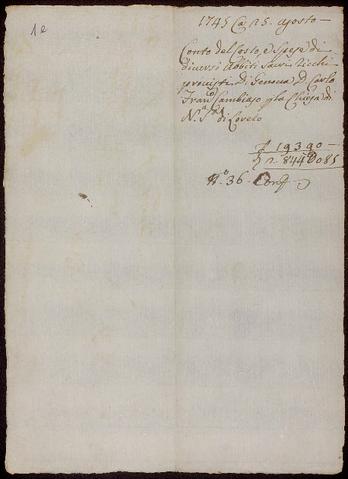 1e
1745 Ca 15 agosto
Conto del Costo, e Spese di
diversi Abbiti Sacri Ricchi
provisti di Genova D. Carlo
Franco Cambiaso p la Chiesa di
N.ª S.ra di Loreto
19390
844 85
N.º 36